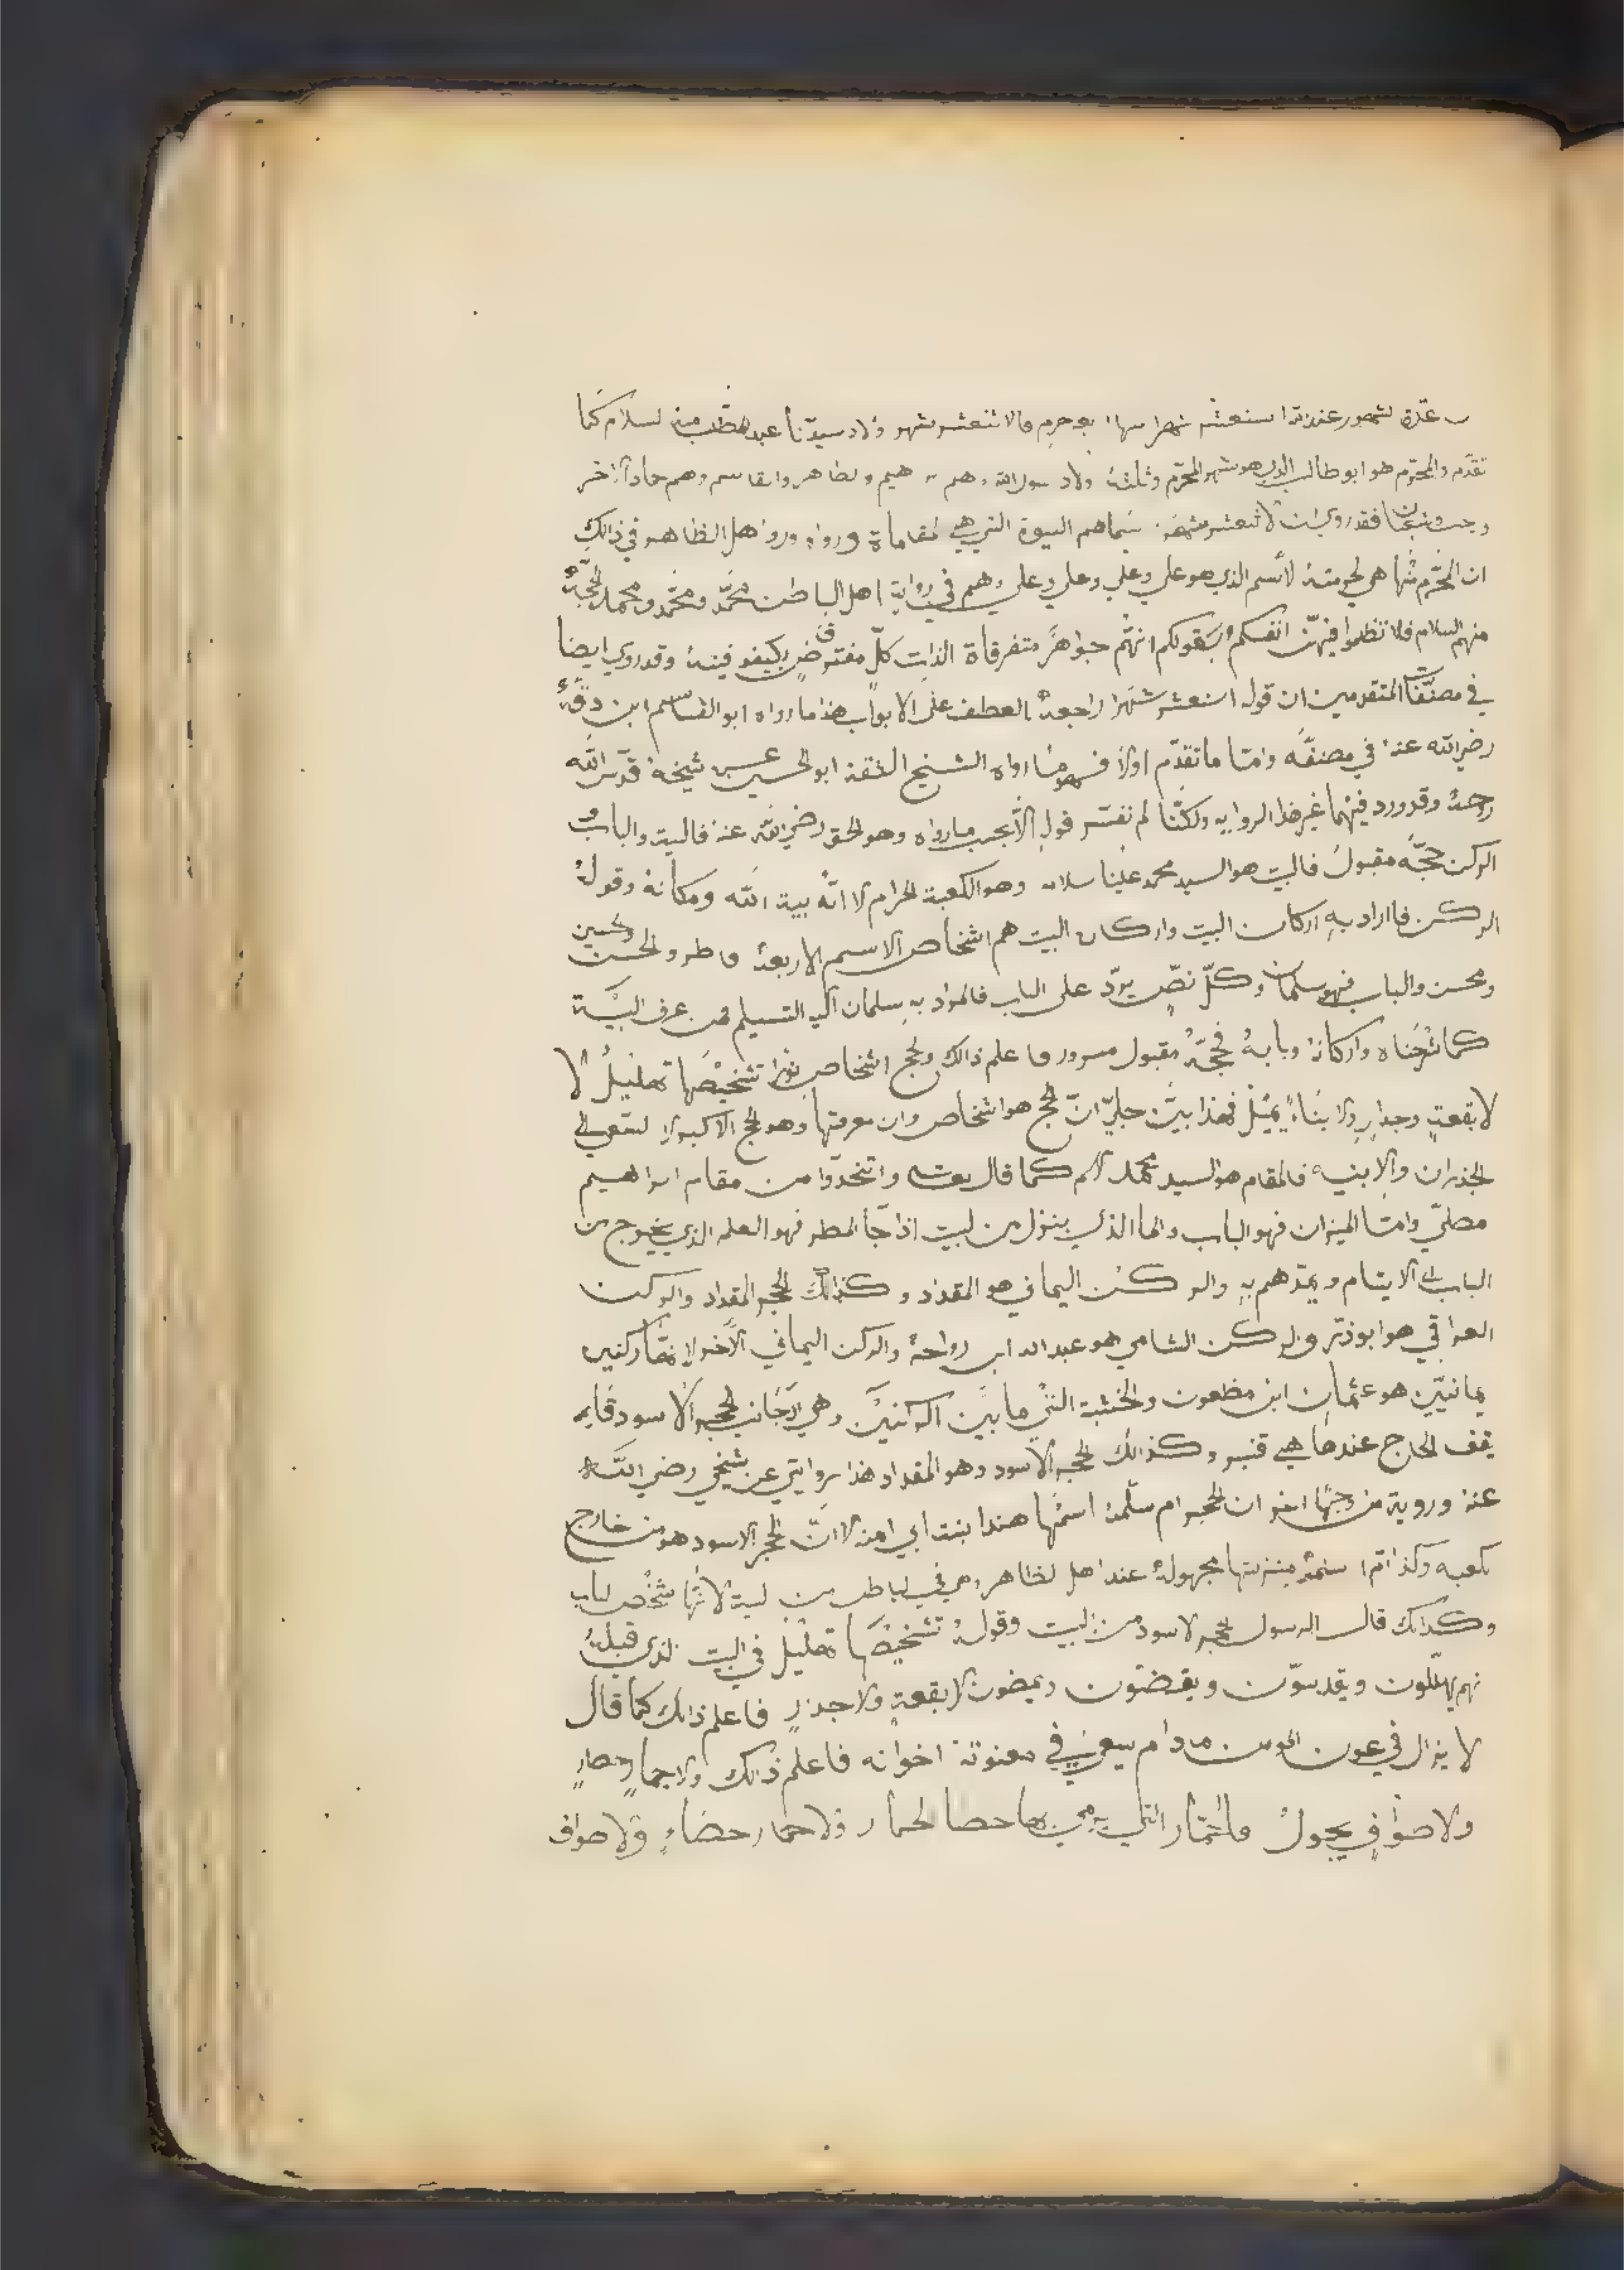 عدة الشهور عند الله اثنعشر شهرا منها اربعه حرم فالاثنعشر شهر اولاد سيدنا عبد المطلب منه السلام كما
تقدم والمحرم هو ابو طالب الذي هو شهر المحرم وثلثة اولاد رسول الله وهم ابراهيم والطاهر والقاسم وهم جمادا الاخر
ورجب وشعبان فقد روي ان الاثنعشر هم البيوة التي هي المقاماة ورواه ورووا اهل الظاهر في ذالك
ان المحرم منها هي لحرمة الاسم الذي هو علي وعلي وعلي وعلي وهم في رواية اهل الباطن محمد ومحمد ومحمد الحجة
منهم السلام فلا تظلموا فيهن انفسكم بقولكم انهم جواهر متفرقاة الذات كل مفترض بكيفو فيه وقد روي ايضا
في مصنفات المتقدمين ان قوله اثنعشر شهرا راجعة العطف على الابواب هذا ما رواه ابو القاسم ابن
رضي الله عنه في مصنفه واما ما تقدم اولا فهو ما رواه الشيخ الثقة ابو الحسين عن شيخه قدس الله
روحه وقد ورد فيهما غير هذا الروايه ولكنا لم نفسر قوله الا بحسب ما رواه وهو الحق رضي الله عنه فالبيت والباب
الركن حجه مقبول فالبيت هو السيد محمد علينا سلامه وهو الكعبة الحرام لا انه بيت الله ومكانه وقوله
الركن فاراد به اركان البيت واركان البيت هم اشخاص الاسم الاربعة فاطر والحسن والحسين
ومحسن والباب فهو سلمان وكل نص يرد على الباب فالمراد به سلمان اليه التسليم فمن عرف البيت
كما شرحناه واركانه وبابه فحجه مقبول مسرور فاعلم ذالك والحج اشخاص تشخيصها تهليل لا
لا بقعة وجدار ولا بناء يميل فهذا بين جلي ان الحج هو اشخاص وان معرفتها وهو الحج الاكبر لا السعي الى
الجدران والابنيه فالمقام هو السيد محمد كما قال تعالى واتخدوا من مقام ابراهيم
مصلي واما الميزان فهو الباب والما الذي ينزل من البيت اذا جا المطر فهو العلم الذي يخرج من
الباب الى الايتام ويمدهم به والركن اليماني هو المقداد وكذالك الحجر المقداد والركن
العراقي هو ابو ذر والركن الشامي هو عبد الله ابن رواحة والركن اليماني الاخر لانها ركنين
يمانيين هو عثمان ابن مظعون والخشبة التي ما بين الركنين وهي الا جانب الحجر الاسود قايمه
يقف الحاج عندها هي قنبر وكذالك الحجر الاسود وهو المقداد هذا روايتي عن شيخي رضي الله
عنه وروية من وجها اخر ان الحجر ام سلمة اسمها هندا بنت ابي اميه لان الحجر الاسود هو من خارج
الكعبه وكذا ام سلمة منزلتها مجهولة عند اهل الظاهر وهي في الباطن من البيت لانها شخص الباب
وكذالك قال الرسول الحجر الاسود من البيت وقوله تشخيصها تهليل في البيت الذي قبله
نهم يهللون ويقدسون ويفضون ويمضون لا بقعة ولا جدار فاعلم ذالك كما قال
لا يزال في عون المومن ما دام يسعى في معونة اخوانه فاعلم ذالك ولا جمار وحصار
ولا صواف يجول فالجمار التي يرمي بها حصا الجمار ولا جمار حصاء ولا صواف